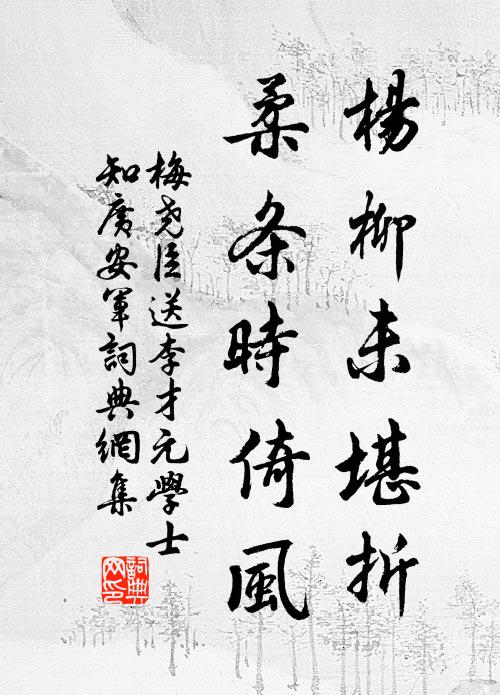 楊柳未堪折
柔条時倚風
梅尧臣送李才元學士
知廣安軍詞典網集
詞典网印